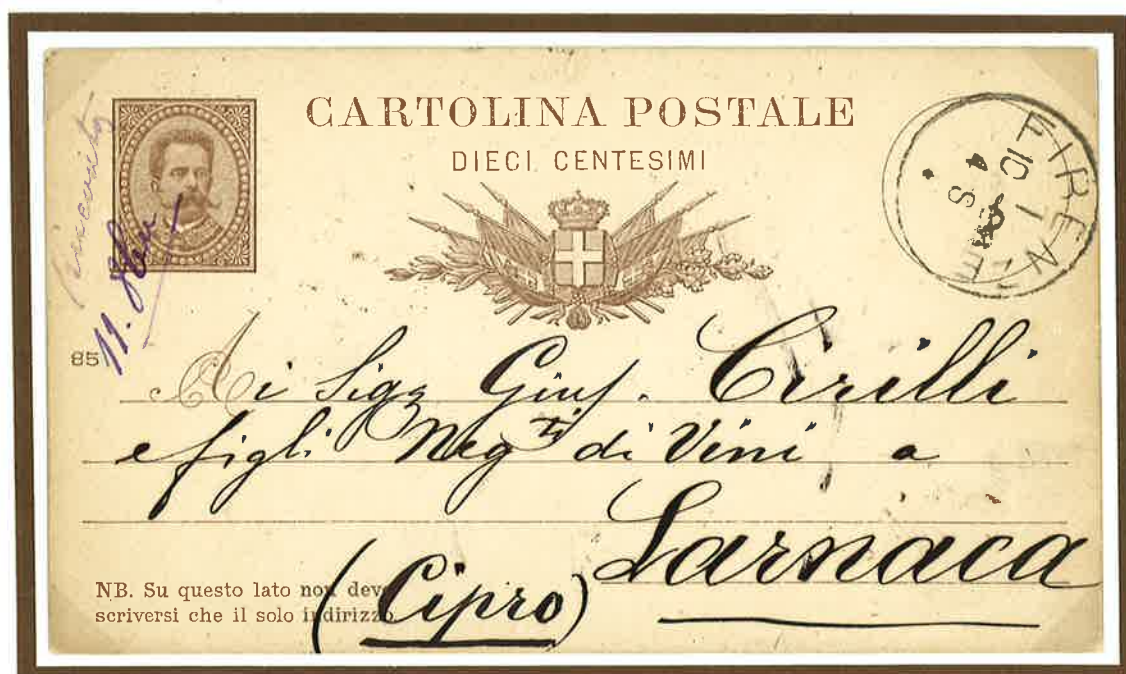 CARTOLINA POSTALE
DIECI CENTESIMI
FIRENZE
10
1
4 S
11.
85
Ai Sigg Gius. Cirilli
e figli Neg ti di Vini a
Larnaca
(Cipro)
NB. Su questo lato non deve
scriversi che il solo indirizzo